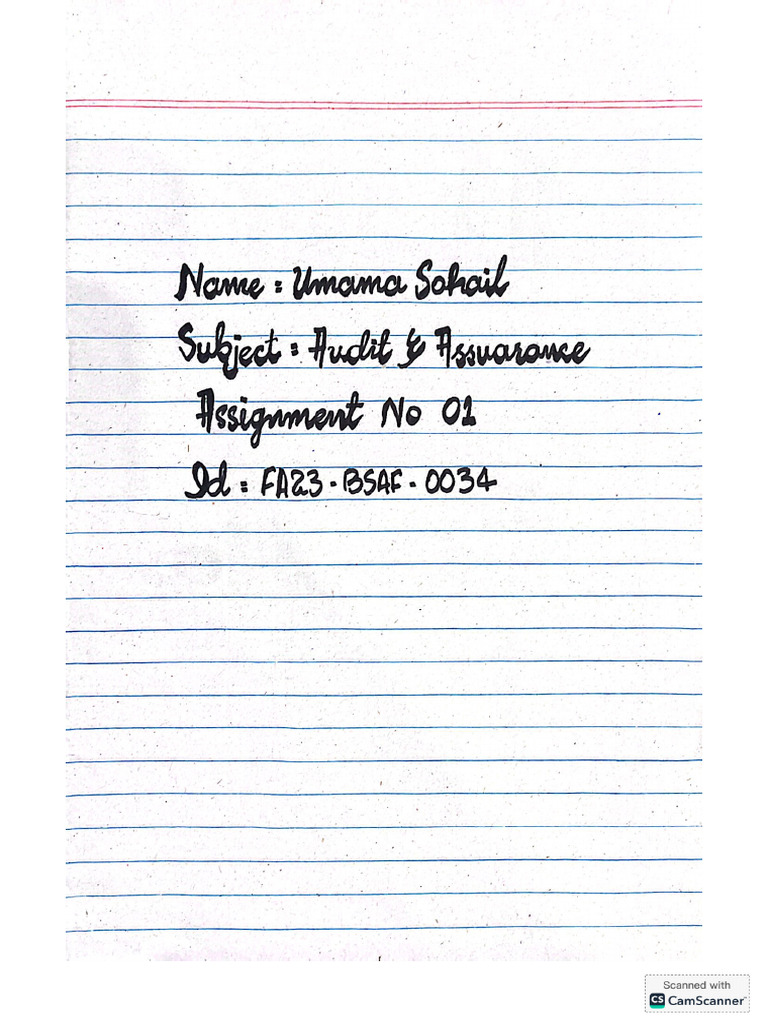 Name : Umama Sohail
Subject : Audit & Assuarance
Assignment No 01
Id : FA23-BSAF-0034
Scanned with
CS CamScanner